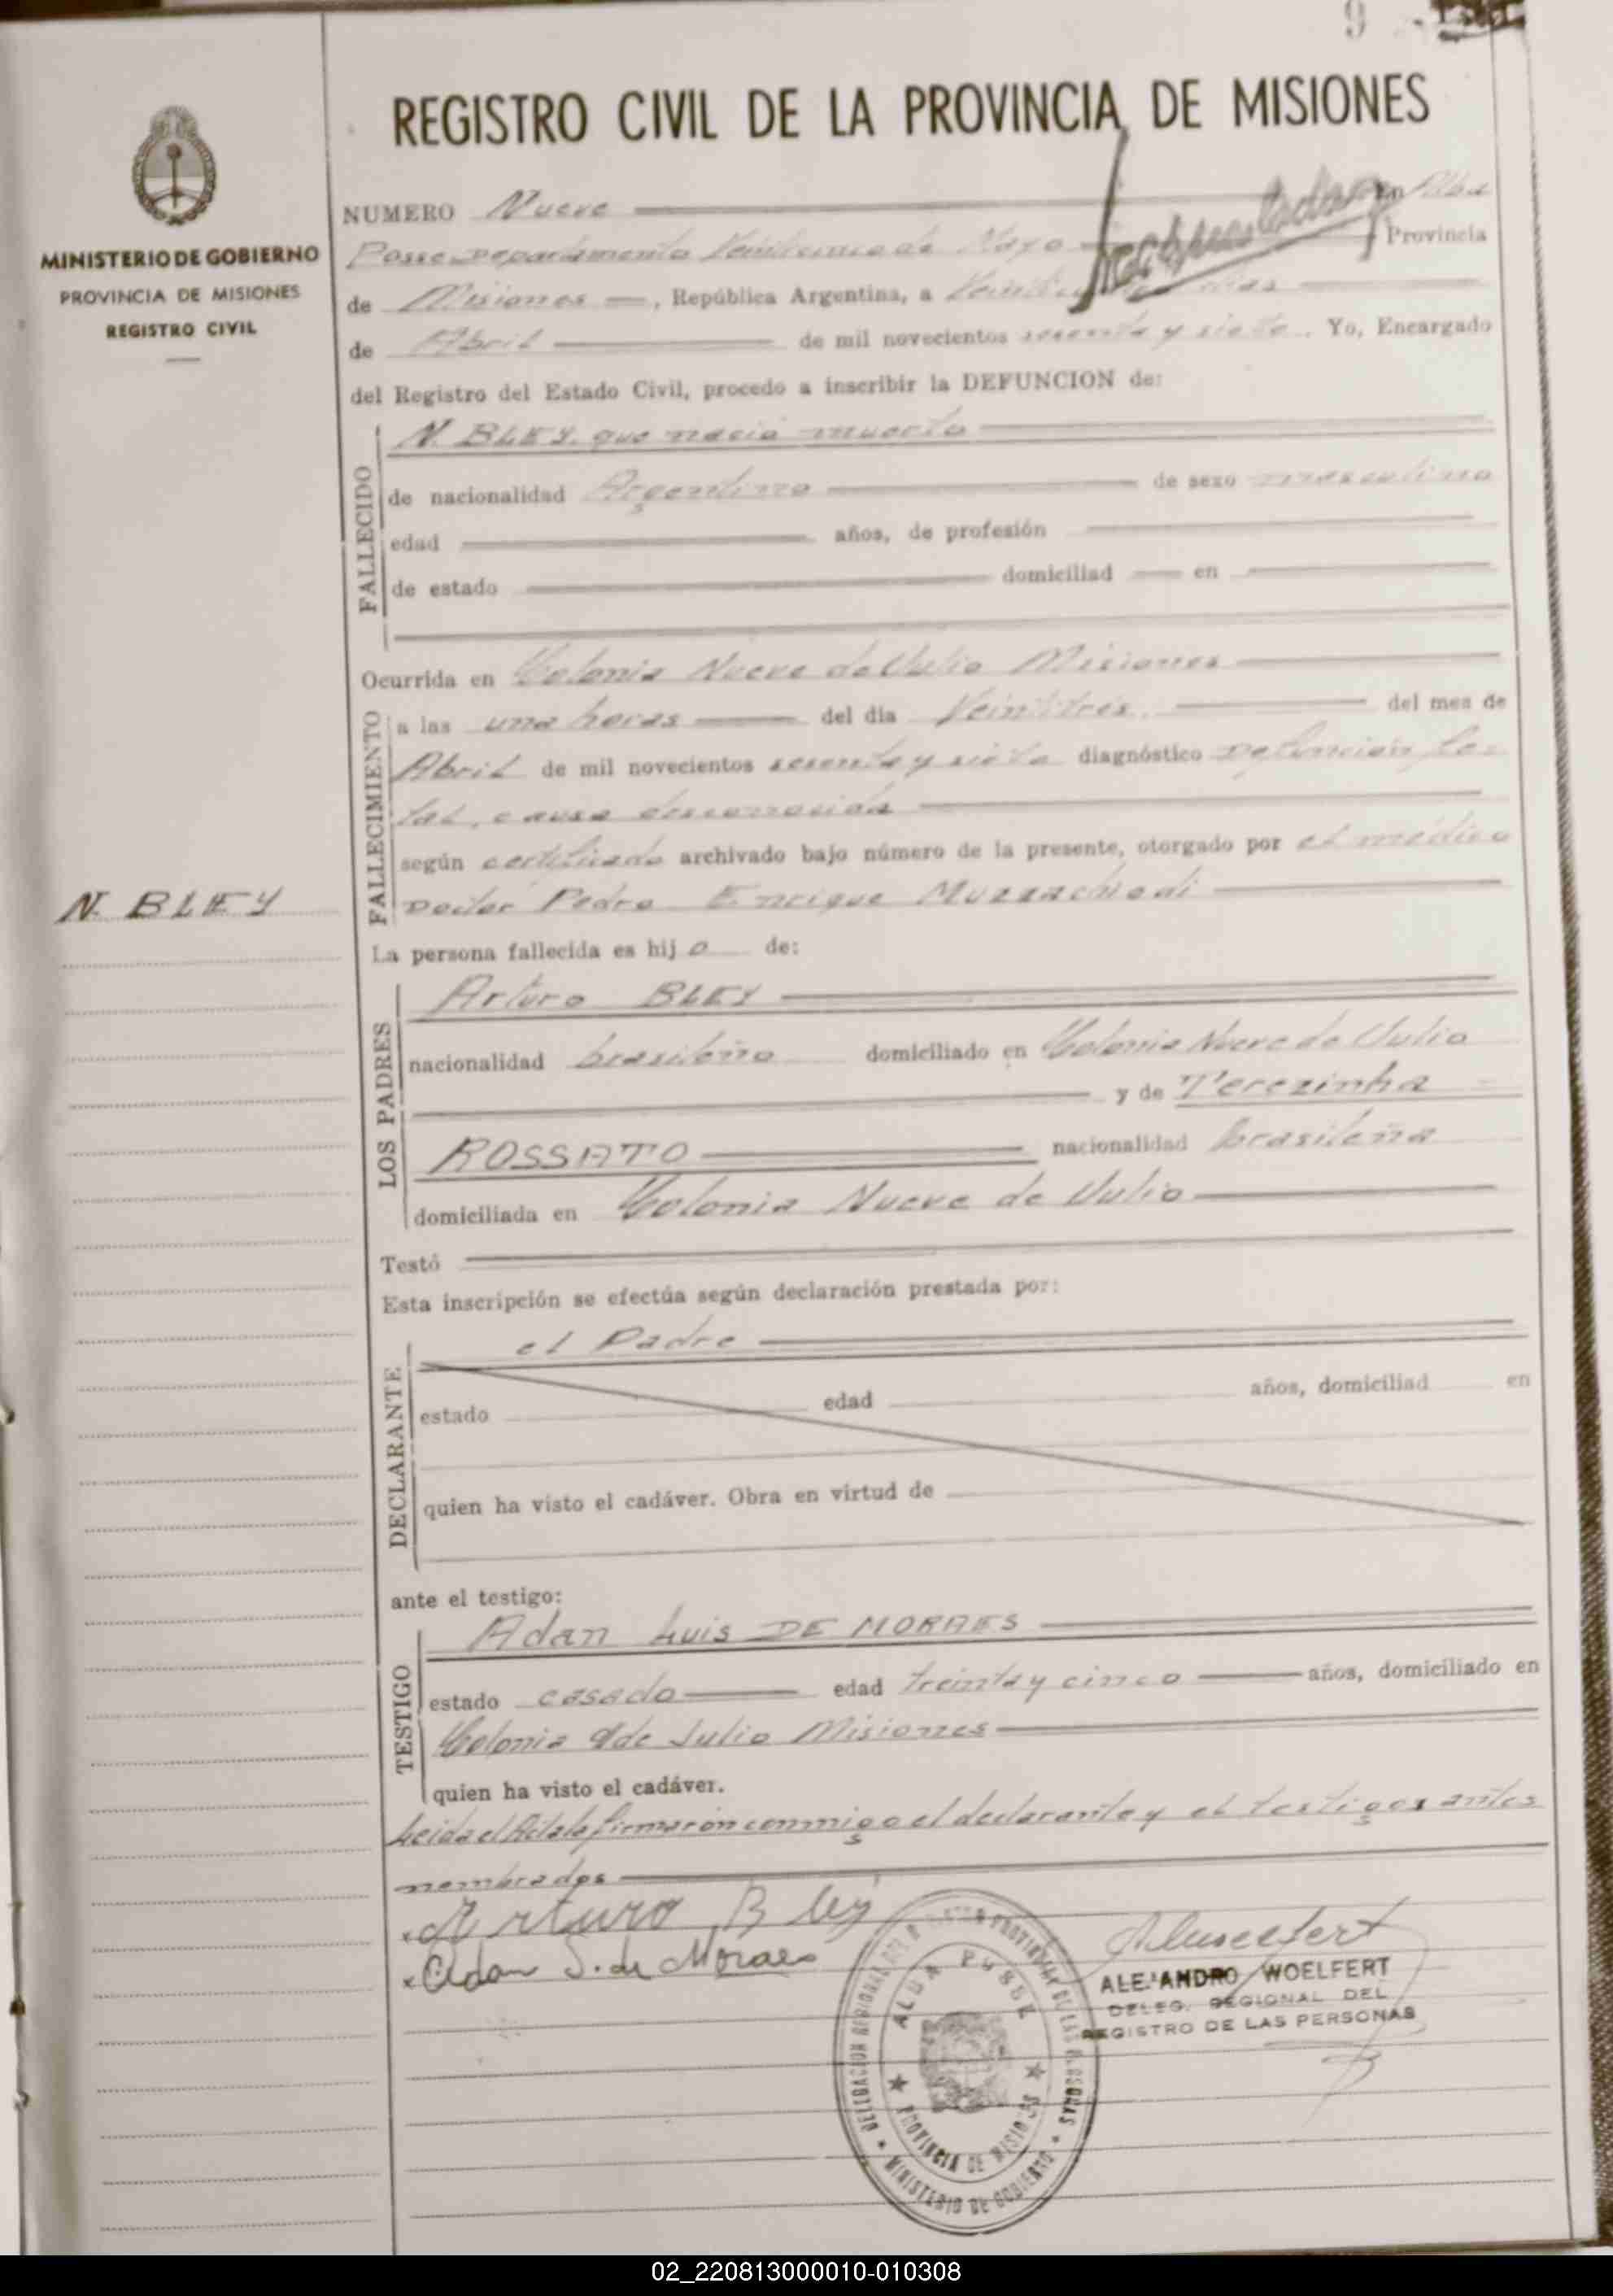 9
REGISTRO CIVIL DE LA PROVINCIA DE MISIONES
MINISTERIO DE GOBIERNO
PROVINCIA DE MISIONES
REGISTRO CIVIL
NUMERO Nueve En Alba
Posse Departamento Veinticinco de Mayo Provincia
de Misiones, República Argentina, a
de Abril de mil novecientos sesenta y siete. Yo, Encargado
del Registro del Estado Civil, procedo a inscribir la DEFUNCION de:
FALLECIDO
N. BLEY. que nació muerto
de nacionalidad Argentino de sexo masculino
edad años, de profesión
de estado domiciliad en
Ocurrida en Colonia Nueve de Julio Misiones
FALLECIMIENTO
a las una horas del día Veintitrés. del mes de
Abril de mil novecientos sesenta y siete diagnóstico Defunción fe-
tal, causa desconocida
según certificado archivado bajo número de la presente, otorgado por el médico
Doctor Pedro Enrique
N. BLEY
La persona fallecida es hijo de:
LOS PADRES
Arturo BLEY
nacionalidad brasileño domiciliado en Colonia Nueve de Julio
y de Terezinha
ROSSATO nacionalidad brasileña
domiciliada en Colonia Nueve de Julio
Testó
Esta inscripción se efectúa según declaración prestada por:
DECLARANTE
el Padre
estado edad años, domiciliad en
quien ha visto el cadáver. Obra en virtud de
ante el testigo:
TESTIGO
Adan Luis DE MORAES
estado casado edad treinta y cinco años, domiciliado en
Colonia 9 de Julio Misiones
quien ha visto el cadáver.
Leida el Acta la firmaron conmigo el declarante y el testigos antes
nombrados
Arturo Bley
Adan S. de Moraes
ALEJANDRO WOELFERT
DELEG. REGIONAL DEL
REGISTRO DE LAS PERSONAS
ALBA POSSE
PROVINCIA DE MISIONES
MINISTERIO DE GOBIERNO
02_220813000010-010308